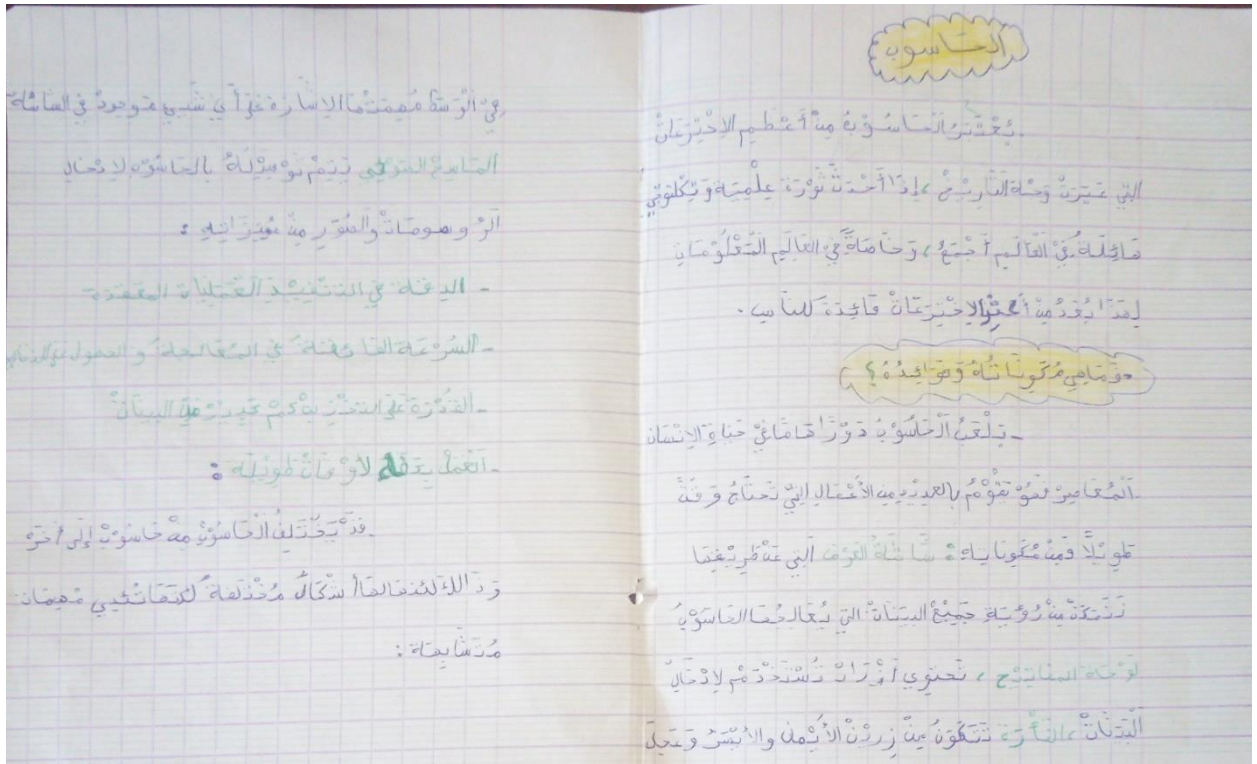 الحاسوب
يُعْتَبَرُ الْحَاسُوْبُ مِنْ أَعْظَمِ الاِخْتِرَعَانْ
التي غيرنْ وجْهَة التَّارِيْخْ، إِذَا أَحْدَثَ ثَوْرَةَ عِلْمِيَة وَتِكْلُوْجِيْ
هَائِلَةْ فِيْ الْعَالَمِ أَجْمَعْ، وَخَاصَةً فِي العَالَمِ الْمَعْلُوْمَاتِ
لِهَذَا يُعَدُ مِنْ أكثر الاِخْتِرَعَانْ فَائِدَةَ للناس.
فَمَا هِي مُكَوِّنَاتُهُ وَفَوَائِدُهُ؟
- يَلْعَبُ الْحَاسُوْبُ دَوْرًا هَامَا فِيْ حَيَاةِ الاِنْسَان
الْمُعَاصِرْ فَهُوْ يَقُوْمُ بالعديد من الأَعْمَالِ التِيْ تَحْتَاجُ وَقْتً
طَوِيْلاً فَمِنْ مُكَوِنَاتِهِ: شَاشَةُ العَرْضِ التِي عَنْ طَرِيْقِهَا
نَتَمَكَنُ مِنْ رُؤْيَةِ جَمِيْعْ البَيَنَاتْ التِي يُعَالِجُهَا الحَاسُوْبُ
لَوْحَة المفَاتِيْح، تَحتَوِي أَزْرَارْ تُسْتَخْدَمْ لإِدْخَالِ
الْبَيَنَاتْ، الفَأْرَة تَتَكَوَنُ مِنْ زِرَيْنْ الأَيْمَن والأَيْسَرْ وَعَجِلَ
فِيْ الْوَسَطْ مُهِمَتُهَا الإِشَارَة عَلَى أَيْ شَيْئ مَوجودْ فِي الشاشَة
المَاسِحْ الضَوئِي يَتِمْ تَوْصِيْلَهُ بالحَاسُوْبِ لإدْخَالِ
الرُّسومَاتْ والصُّوَرِ مِنْ مُمَيَزَاتِهِ:
- الدِقَة فِي التَنْفِيْذ الْعَمَلِيَات المُعَقَدَة
- السُرْعَة الفَائِقَة فِي المُعَالَجَة وَ الحصول على النتائج
- القُدْرَة عَلَى التَخْزِيْنْ كَمْ كَبِيْر مِنْ البيَانَاتْ
- الْعَمَلْ بِدِقَة لأَوْقَاتْ طَوِيْلَة:
قَدْ يَخْتَلِفُ الْحَاسُوْبْ مِنْ حَاسُوْبْ إِلَى أخَرْ
وَ ذَالِكَ لإنَهَا لهَا أَشْكَالْ مُخْتَلِفَةْ لَكِنَهَا تُحْيِي مُهِمَات
مُتَشَابِهَة: